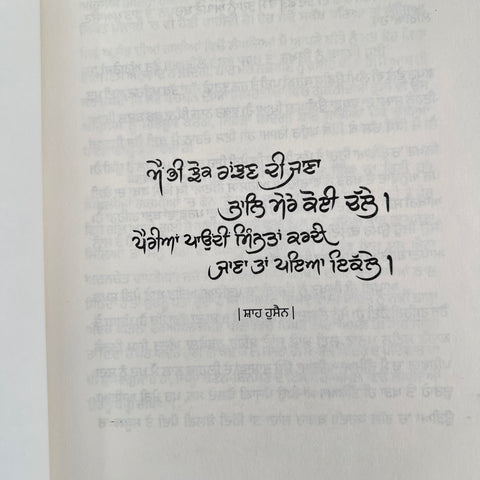 ਮੈਂ ਭੀ ਝੋਕ ਰਾਂਝਣ ਦੀ ਜਾਣਾ
ਨਾਲਿ ਮੇਰੇ ਕੋਈ ਚੱਲੇ ।
ਪੈਰੀਆਂ ਪਾਉਂਦੀ ਮਿੰਨਤਾਂ ਕਰਦੀ
ਜਾਣਾ ਤਾਂ ਪਇਆ ਇਕੱਲੇ ।
| ਸ਼ਾਹ ਹੁਸੈਨ |